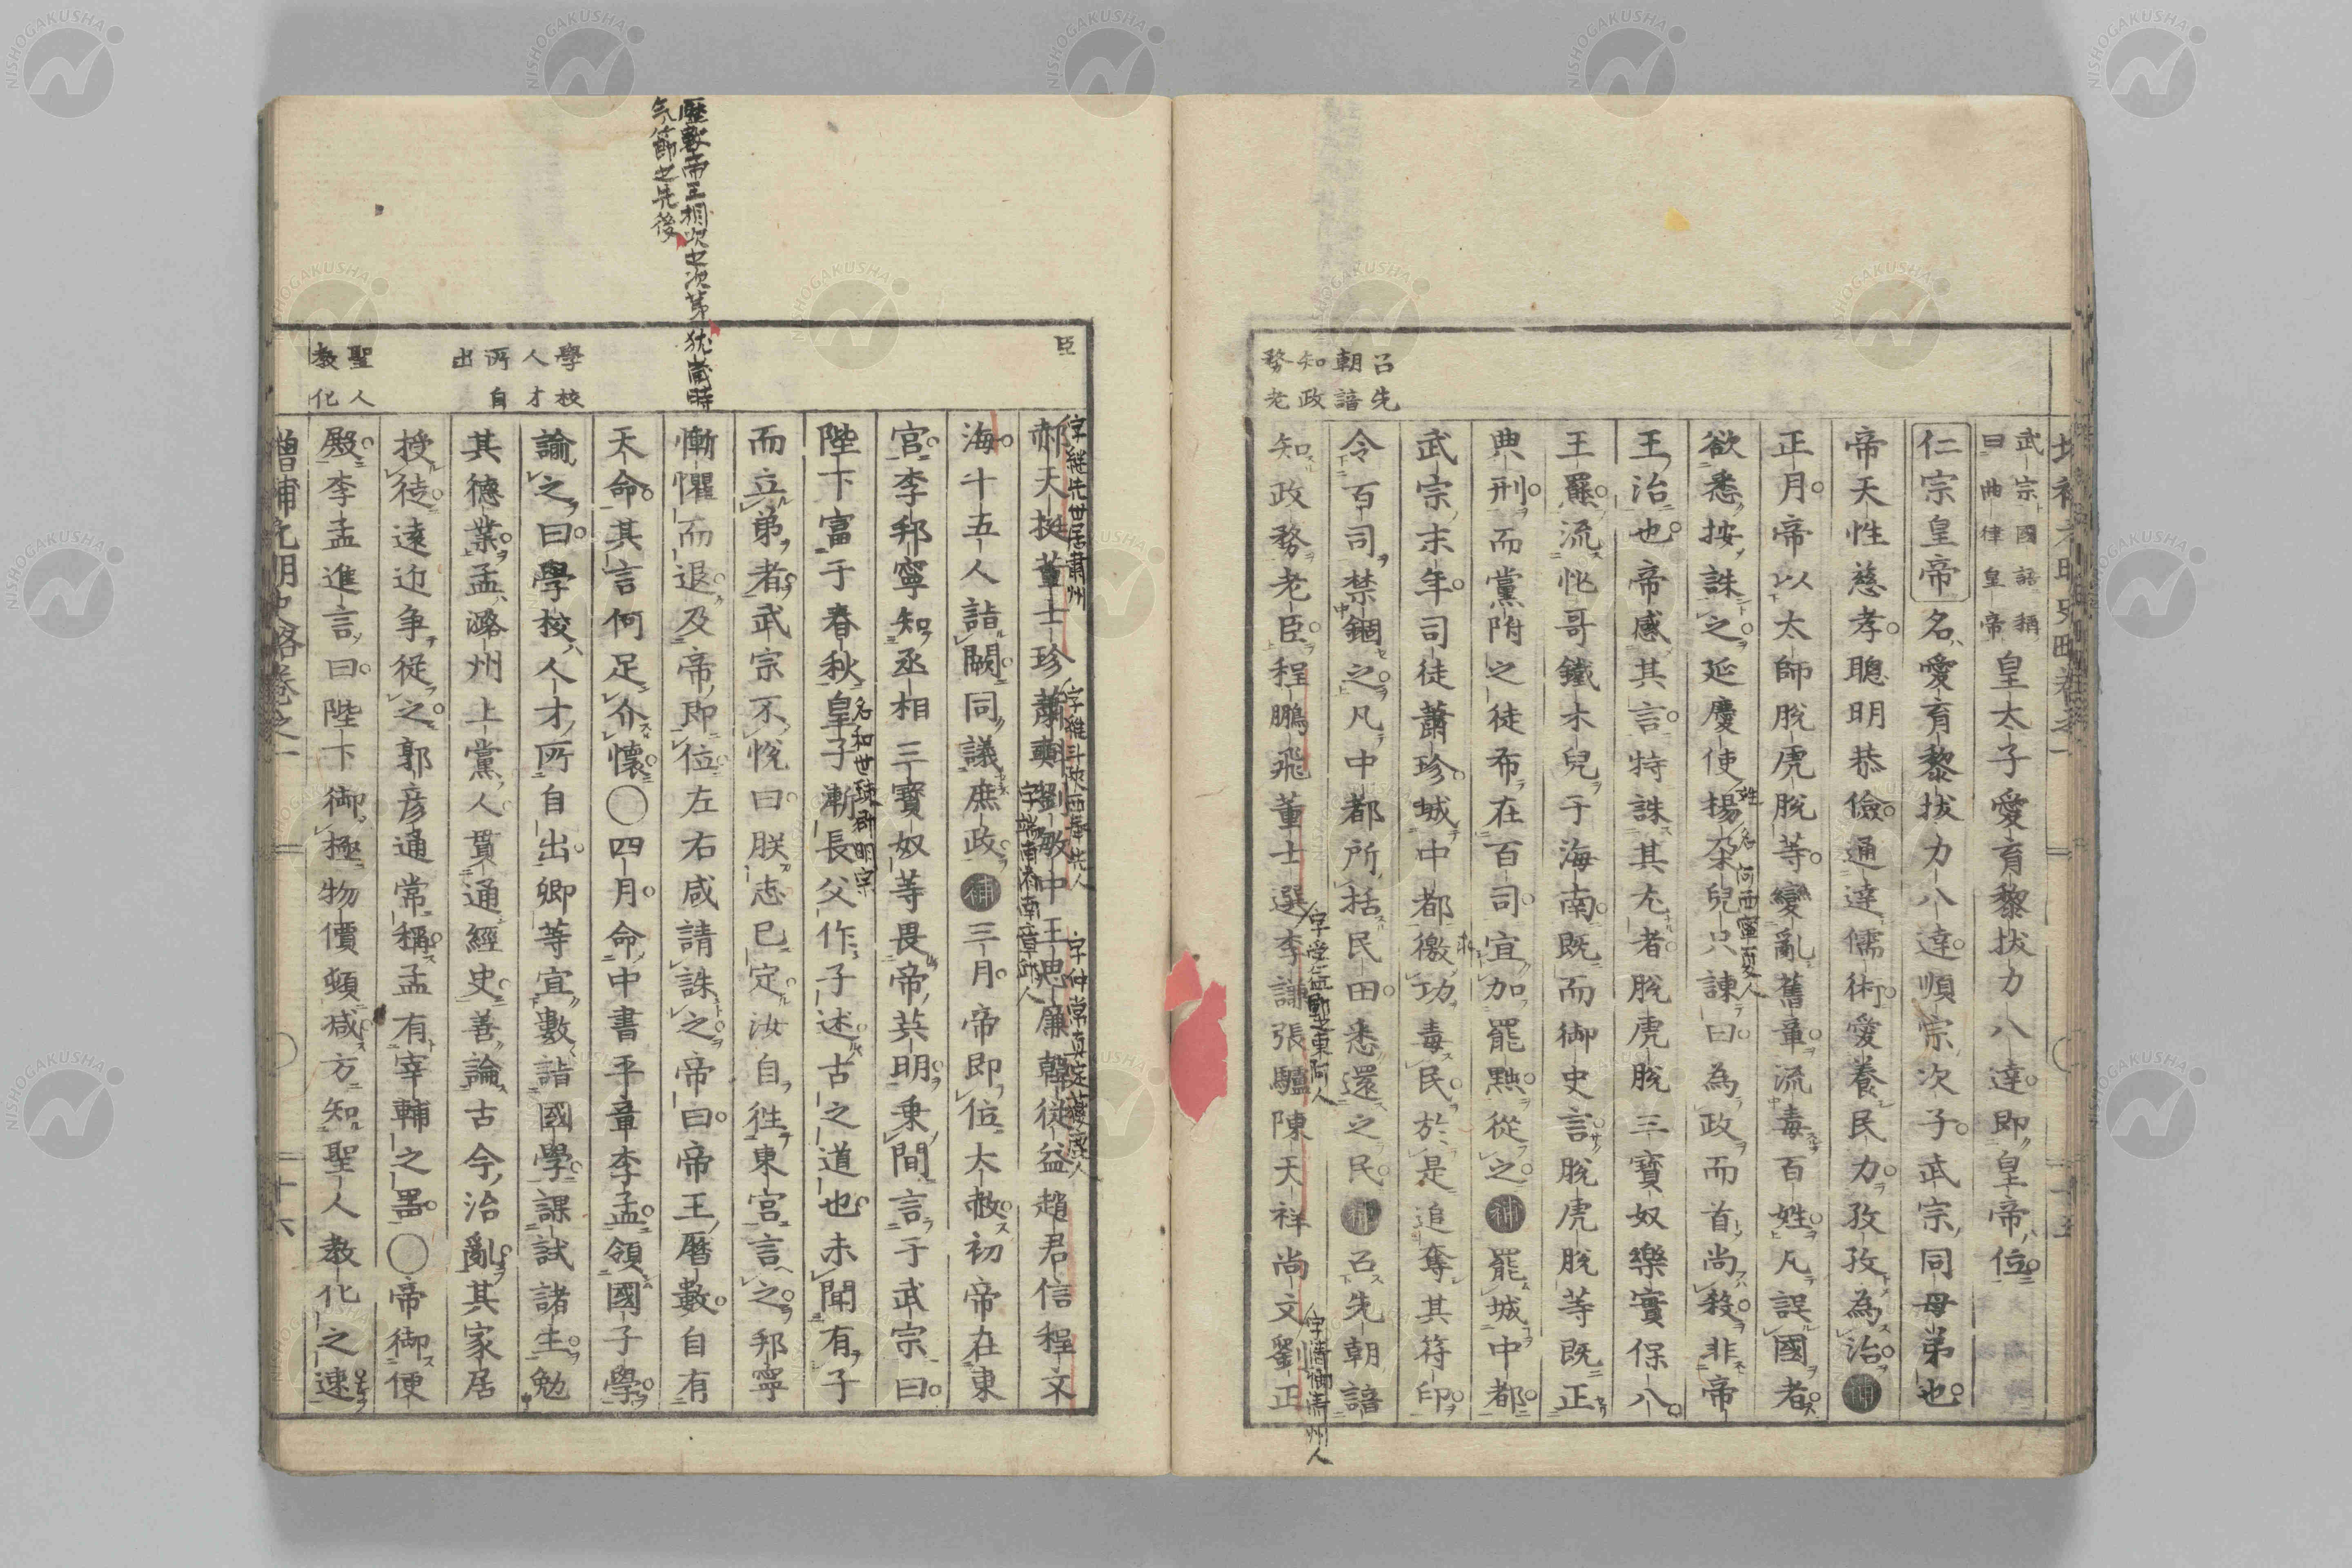 召先
朝諳
知政
務老
武宗國語稱
曰曲律皇帝
皇太子愛育黎拔力八達即皇帝位
仁宗皇帝名愛育黎拔力八達順宗次子武宗同母弟也
帝天性慈孝聰明恭儉通達儒術愛養民力孜孜為治補
正月帝以太師脫虎脫等變亂舊章流毒百姓凡誤國者
欲悉按誅之延慶使楊朶兒只諫曰為政而首尚殺非帝
王治也帝感其言特誅其尤者脫虎脫三寶奴樂實保八
王羆流忙哥鐵木兒于海南既而御史言脫虎脫等既正
典刑而黨附之徒布在百司宜加罷黜從之補罷城中都
武宗末年司徒蕭珍城中都徼功毒民於是追奪其符印
令百司禁錮之凡中都所括民田悉還之民補召先朝諳
知政務老臣程鵬飛董士選李謙張驢陳天祥尚文劉正
姓
名河西寧夏人
字受益鄆之東阿人
字清卿清州人
臣
歷數帝王相次之次第猶歲時
气節之先後
學校
人才
所自
出
聖人
教化
郝天挺董士珍蕭㪺劉敏中王思廉韓從益趙君信程文
海十五人詣闕同議庶政補三月帝即位大赦初帝在東
宮李邦寧知丞相三寶奴等畏帝英明乘間言于武宗曰
陛下富于春秋皇子漸長父作子述古之道也未聞有子
而立弟者武宗不悅曰朕志已定汝自徃東宮言之邦寧
慚懼而退及帝即位左右咸請誅之帝曰帝王曆數自有
天命其言何足介懷○四月命中書平章李孟領國子學
諭之曰學校人才所自出卿等宜數詣國學課試諸生勉
其德業孟潞州上黨人貫通經史善論古今治亂其家居
授徒遠近爭從之郭彥通常稱孟有宰輔之器○帝御便
殿李孟進言曰陛下御極物價頓減方知聖人教化之速
字繼先世居肅州
字維斗
字端甫
字仲常真定獲鹿人
名和世㻋廟明宗
增補元明史略卷之一
二十六